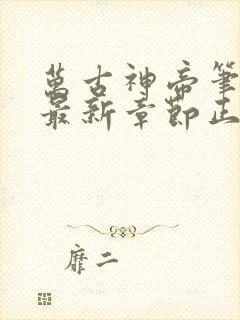 萬古神帝筆
最新章節正
靡二